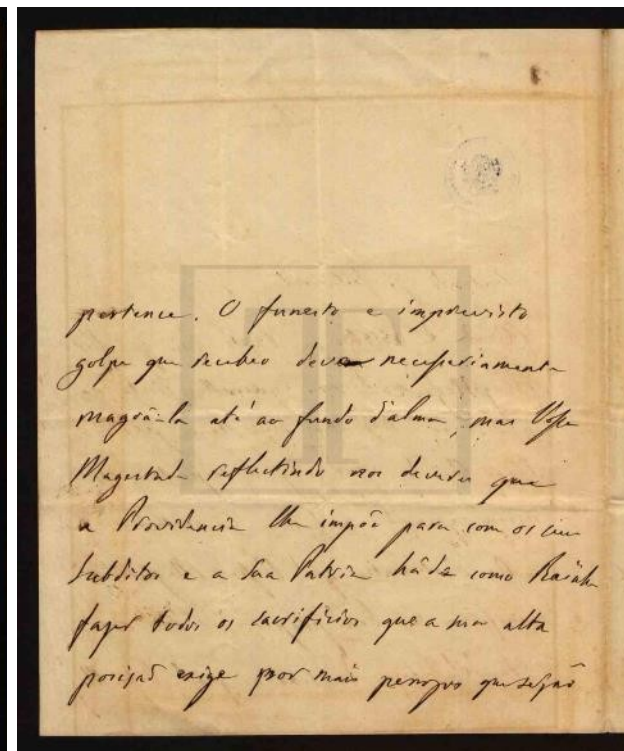 pertence. O funesto e imprevisto
golpe que recebeo deve necessariamente
magoá-la até ao fundo d'alma, mas Vossa
Magestade reflectindo nos deveres que
a Providencia lhe impõe para com os seus
subditos e a sua Patria háde como Rainha
fazer todos os sacrificios que a sua alta
posição exige por mais penosos que sejão